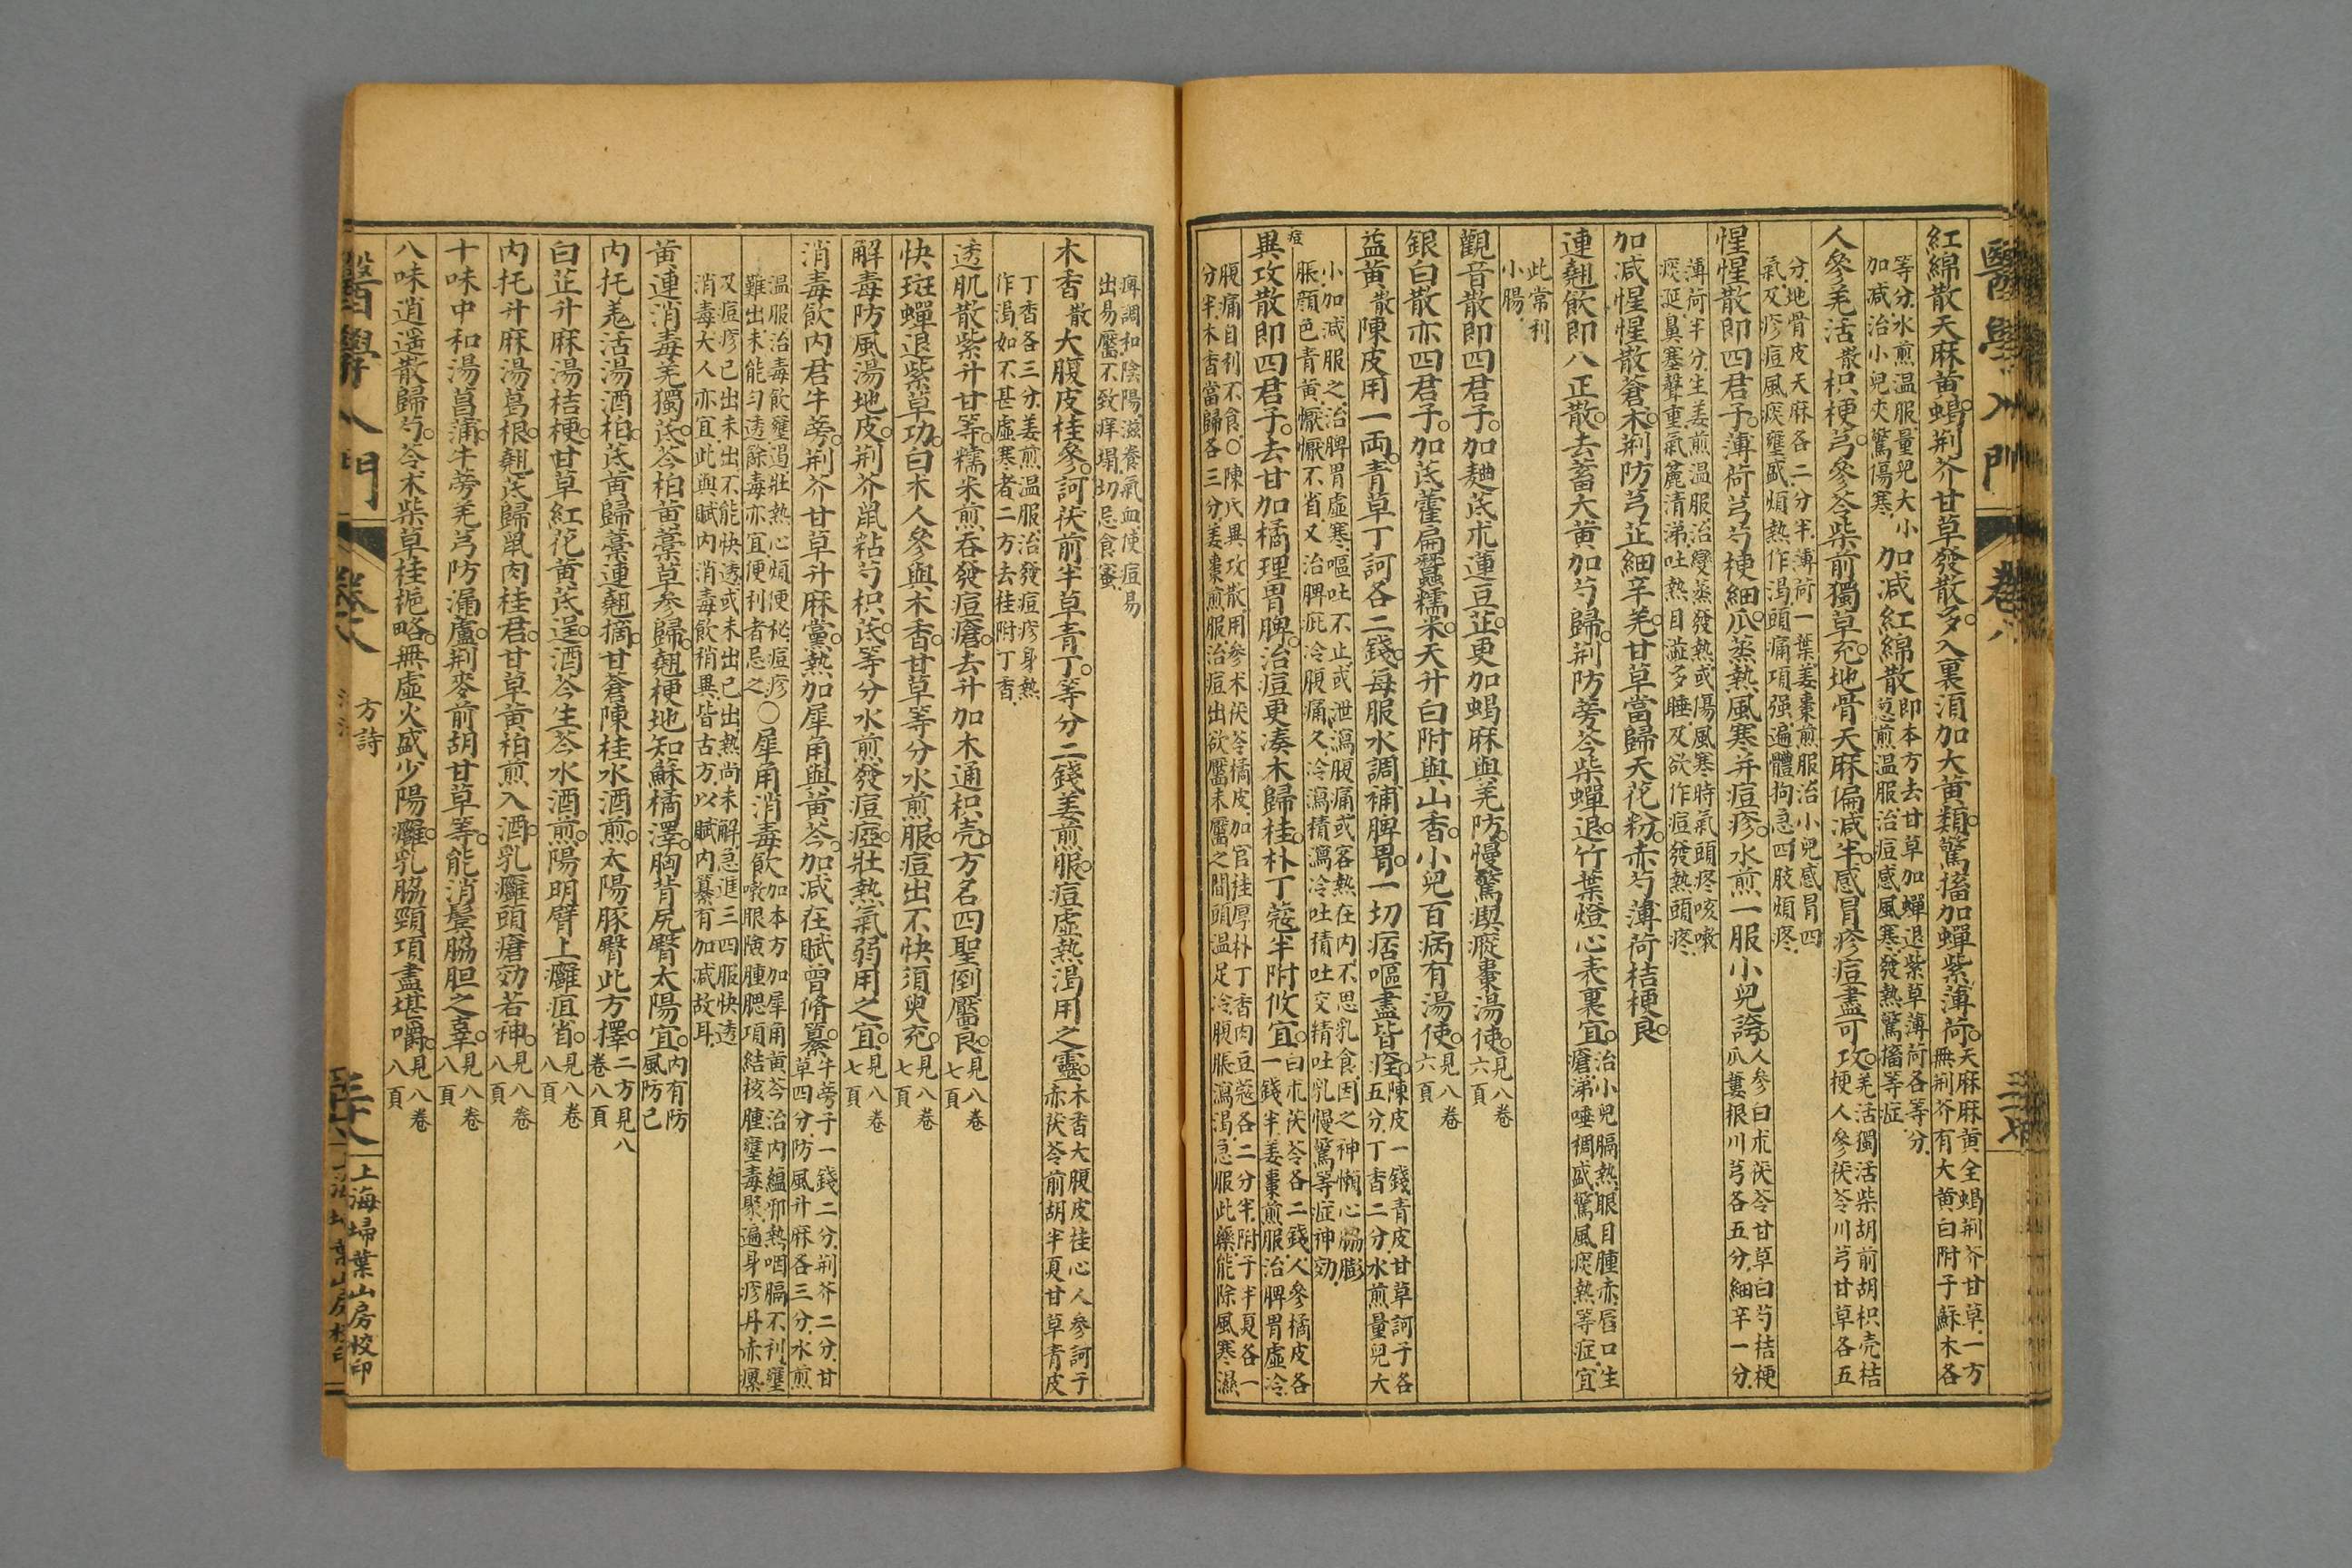 醫學入門 卷八
紅綿散天麻黄蝎荆芥甘草發散多入裏須加大黄類驚搐加蟬紫薄荷天麻麻黄全蝎荆芥甘草一方
無荆芥有大黄白附子蘇木各
等分水煎温服量兒大小
加减治小兒夾驚傷寒
加减紅綿散即本方去甘草加蟬退紫草薄荷各等分
葱煎温服治痘感風寒發熱驚搐等症
人參羌活散枳梗芎參苓柴前獨草充地骨天麻偏減半感冒疹痘盡可攻羌活獨活柴胡前胡枳壳桔
梗人參茯苓川芎甘草各五
分地骨皮天麻各二分半薄荷一葉姜棗煎服治小兒感冒四
氣及疹痘風痰壅盛煩熱作渴頭痛項强遍體拘急四肢煩疼
惺惺散即四君子薄荷芎芍梗細瓜蒸熱風寒并痘疹水煎一服小兒誇人參白朮茯苓甘草白芍桔梗
瓜蔞根川芎各五分細辛一分
薄荷半分生姜煎温服治變蒸發熱或傷風寒時氣頭疼咳嗽
痰延鼻塞聲重氣麄清涕吐熱目澁多睡及欲作痘發熱頭疼
加减惺惺散蒼木荆防芎芷細辛羌甘草當歸天花粉赤芍薄荷桔梗良
連翹飲即八正散去蓄大黄加芍歸荆防蒡芩柴蟬退竹葉燈心表裏宜治小兒膈熱眼目腫赤唇口生
瘡涕唾稠盛驚風痰熱等症宜
此常利
小腸
觀音散即四君子加麯芪朮蓮豆芷更加蝎麻與羌防慢驚瘈瘲棗湯使見八卷
六頁
銀白散亦四君子加芪藿扁蠶糯米天升白附與山香小兒百病有湯使見八卷
六頁
益黄散陳皮用一兩青草丁訶各二錢每服水調補脾胃一切痞嘔盡皆痊陳皮一錢青皮甘草訶子各
五分丁香二分水煎量兒大
小加减服之治脾胃虛寒嘔吐不止或泄瀉腹痛或客熱在内不思乳食因之神懶心脇膨
脹顔色青黄懨懨不省又治脾疪冷腹痛久冷瀉積瀉冷吐積吐交精吐乳慢驚等症神効
痘
異攻散即四君子去甘加橘理胃脾治痘更湊木歸桂朴丁蔻半附攸宜白朮茯苓各二錢人參橘皮各
一錢半姜棗煎服治脾胃虛冷
腹痛自利不食〇陳氏異攻散用參朮茯苓橘皮加官桂厚朴丁香肉豆蔻各二分半附子半夏各一
分半木香當歸各三分姜棗煎服治痘出欲靨未靨之間頭温足冷腹脹瀉渴急服此藥能除風寒濕
痺調和陰陽滋養氣血使痘易
出易靨不致痒塌切忌食蜜
木香散大腹皮桂參訶茯前半草青丁等分二錢姜煎服痘虛熱渴用之靈木香大腹皮桂心人參訶子
赤茯苓前胡半夏甘草青皮
丁香各三分姜煎温服治發痘疹身熱
作渴如不甚虛寒者二方去桂附丁香
透肌散紫升甘等糯米煎吞發痘瘡去升加木通枳壳方名四聖倒靨良見八卷
七頁
快斑蟬退紫草功白木人參與木香甘草等分水煎服痘出不快須臾充見八卷
七頁
解毒防風湯地皮荆芥鼠粘芍枳芪等分水煎發痘瘂壯熱氣弱用之宜見八卷
七頁
消毒飲内君牛蒡荆芥甘草升麻黨熱加犀角與黄芩加减在賦曾脩纂牛蒡子一錢二分荆芥二分甘
草四分防風升麻各三分水煎
温服治毒飲壅遏壯熱心煩便秘痘疹
難出未能勻透餘毒亦宜便利者忌之
〇犀角消毒飲加本方加犀角黄芩治内藴邪熱咽膈不利壅
嗽眼瞼腫腮項結核腫壅毒聚遍身疹丹赤瘭
及痘疹已出未出不能快透或未出已出熱尚未解急進三四服快透
消毒大人亦宜此與賦内消毒飲稍異皆古方以賦内纂有加减故耳
黄連消毒羌獨芪芩柏黄藁草参歸翹梗地知蘇橘澤胸背尻臀太陽宜内有防
風防己
内托羗活湯酒柏芪黄歸藁連翹摘甘蒼陳桂水酒煎太陽豚臀此方擇二方見八
卷八頁
白芷升麻湯桔梗甘草紅花黄芪逞酒芩生芩水酒煎陽明臂上癰疽省見八卷
八頁
内托升麻湯葛根翹芪歸鼠肉桂君甘草黄柏煎入酒乳癰頭瘡効若神見八卷
八頁
十味中和湯菖蒲牛蒡羌芎防漏蘆荆麥前胡甘草等能消鬓脇胆之辜見八卷
八頁
八味逍遥散歸芍苓朮柴草桂梔略無虛火盛少陽癰乳脇頸項盡堪嚼見八卷
八頁
醫學入門 卷八
方詩
上海埽葉山房校印